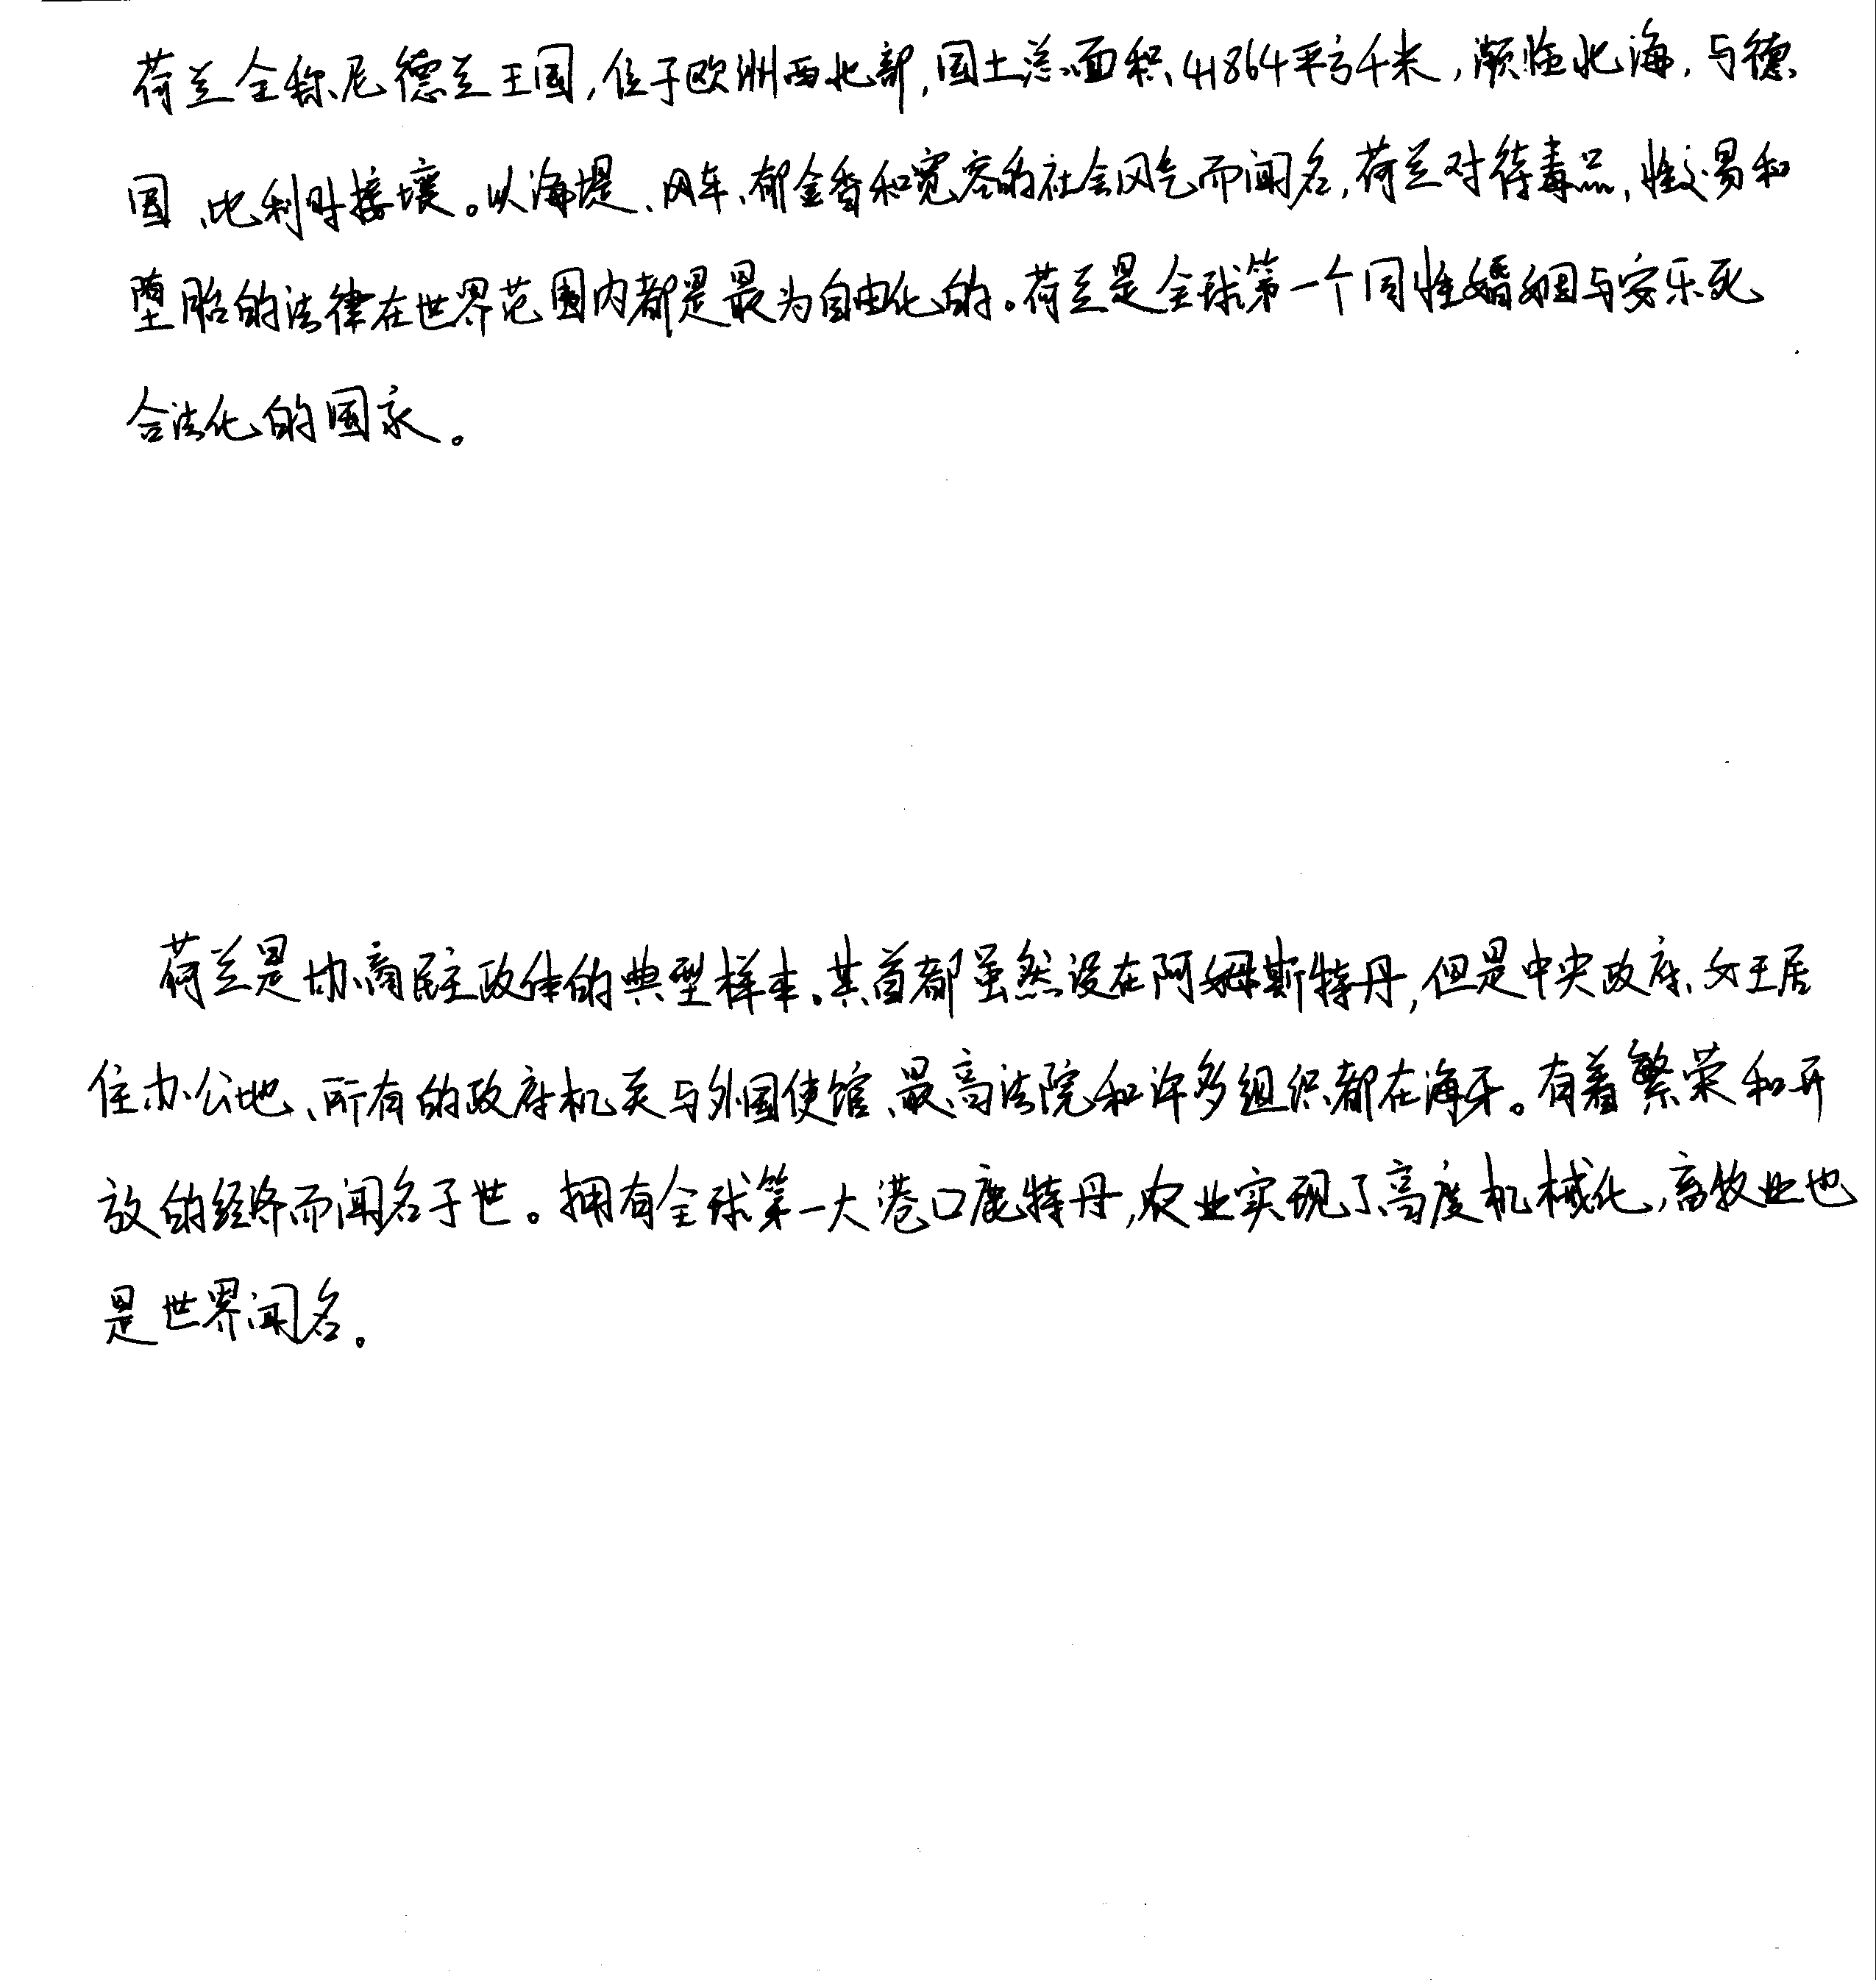 荷兰全称尼德兰王国,位于欧洲西北部,国土总面积41864平方千米,濒临北海,与德
国、比利时接壤。以海堤、风车、郁金香和宽容的社会风气而闻名,荷兰对待毒品,性交易和
堕胎的法律在世界范围内都是最为自由化的。荷兰是全球第一个同性婚姻与安乐死
合法化的国家。
荷兰是协商民主政体的典型样本。其首都虽然设在阿姆斯特丹,但是中央政府、女王居
住办公地、所有的政府机关与外国使馆、最高法院和许多组织都在海牙。有着繁荣和开
放的经济而闻名于世。拥有全球第一大港口鹿特丹,农业实现了高度机械化,畜牧业也
是世界闻名。